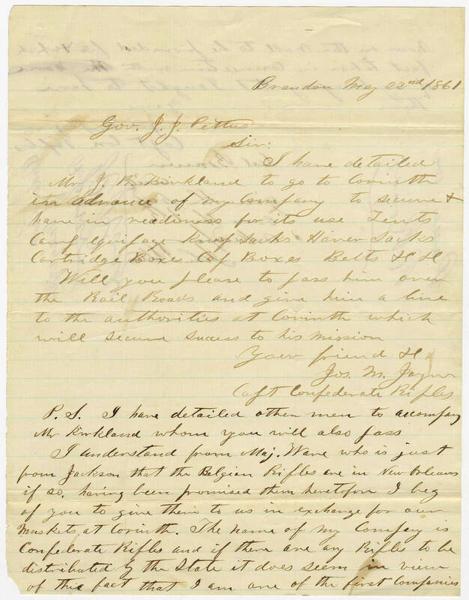 Brandon May 22nd 1861
Gov. J. J. Pettus
Sir:
I have detailed
Mr J. R. Kirkland to go to Corinth
in advance of my Company to secure &
have in readiness for its use Tents
Camp Equipage Knap Sacks Haver Sacks
Cartridge Boxes Cap Boxes Belts
Will you please to pass him over
the Rail Roads and give him a line
to the authorities at Corinth which
will secure sucess to his mission
Your friend &
Jos. M. Jayne
Capt Confederate Rifles
P. S. I have detailed other men to accompany
Mr Kirkland whom you will also pass
I understand from Maj. Ware who is just
from Jackson that the Belgian Rifles are in New Orleans
if so, having been promised them heretofore I beg
of you to give them to us in exchange for our
muskets at Corinth. The name of my Company is
Confederate Rifles and if there are any Rifles to be
distributed by the State it does seem in view
of this fact that I am one of the first Companies